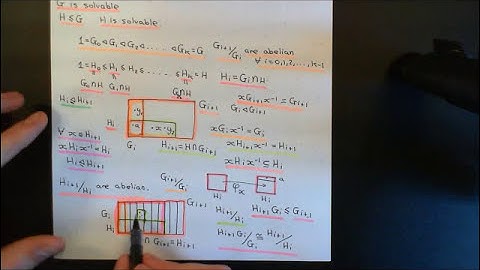 G is solvable
H ≤ G H is solvable
1 = G₀ ◁ G₁ ◁ G₂ ◁ . . . . . ◁ Gₖ = G Gᵢ₊₁/Gᵢ are abelian
∀ i=0,1,2,...,k-1
1 = H₀ ≤ H₁ ≤ H₂ ≤ . . . . ≤ Hₖ = H Hᵢ = Gᵢ∩H
G₀∩H G₁∩H Gₖ∩H
xGᵢ₊₁x⁻¹ = Gᵢ₊₁
Gᵢ ◁ Gᵢ₊₁
Hᵢ ⊴ Hᵢ₊₁
Gᵢ₊₁
Hᵢ
·y₁
·a ·x ·y₂
xGᵢx⁻¹ = Gᵢ
∀ x ∈ Hᵢ₊₁ Gᵢ Hᵢ₊₁ = H∩Gᵢ₊₁ xHᵢ₊₁x⁻¹ = Hᵢ₊₁
xHᵢx⁻¹ = Hᵢ xHᵢx⁻¹ ⊆ Gᵢ
Hᵢ ⊴ Hᵢ₊₁
Hᵢ₊₁/Hᵢ are abelian. Gᵢ₊₁/Gᵢ φₓ a
Gᵢ₊₁
Gᵢ
Hᵢ
Hᵢ₊₁/Hᵢ Hᵢ₊₁Gᵢ ≤ Gᵢ₊₁
∩ Gᵢ₊₁ = Hᵢ₊₁ Hᵢ₊₁Gᵢ/Gᵢ ≅ Hᵢ₊₁/Hᵢ